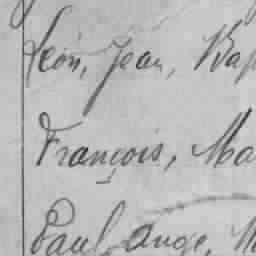 Léon, Jean, Bap
François, Ma
Paul, Ange, M